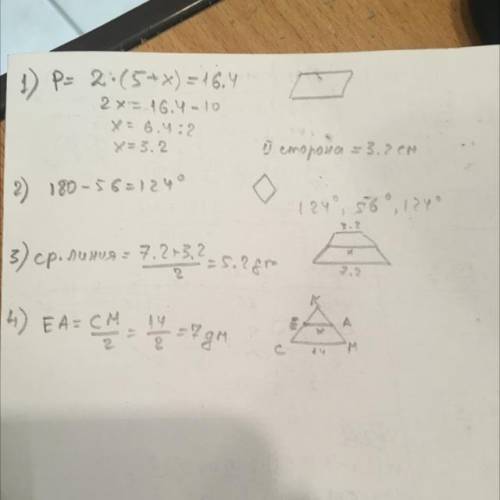 1) P= 2·(5+x)=16.4
2x=16.4-10
x=6.4:2
x=3.2
II сторона=3.2см
2) 180-56=124°
124°, 56°, 124°
3) ср.линия= 7.2+3.2/2 =5.2дм
3.2
x
7.2
4) EA= CM/2 = 14/2 =7дм
K
E
A
x
C
14
M